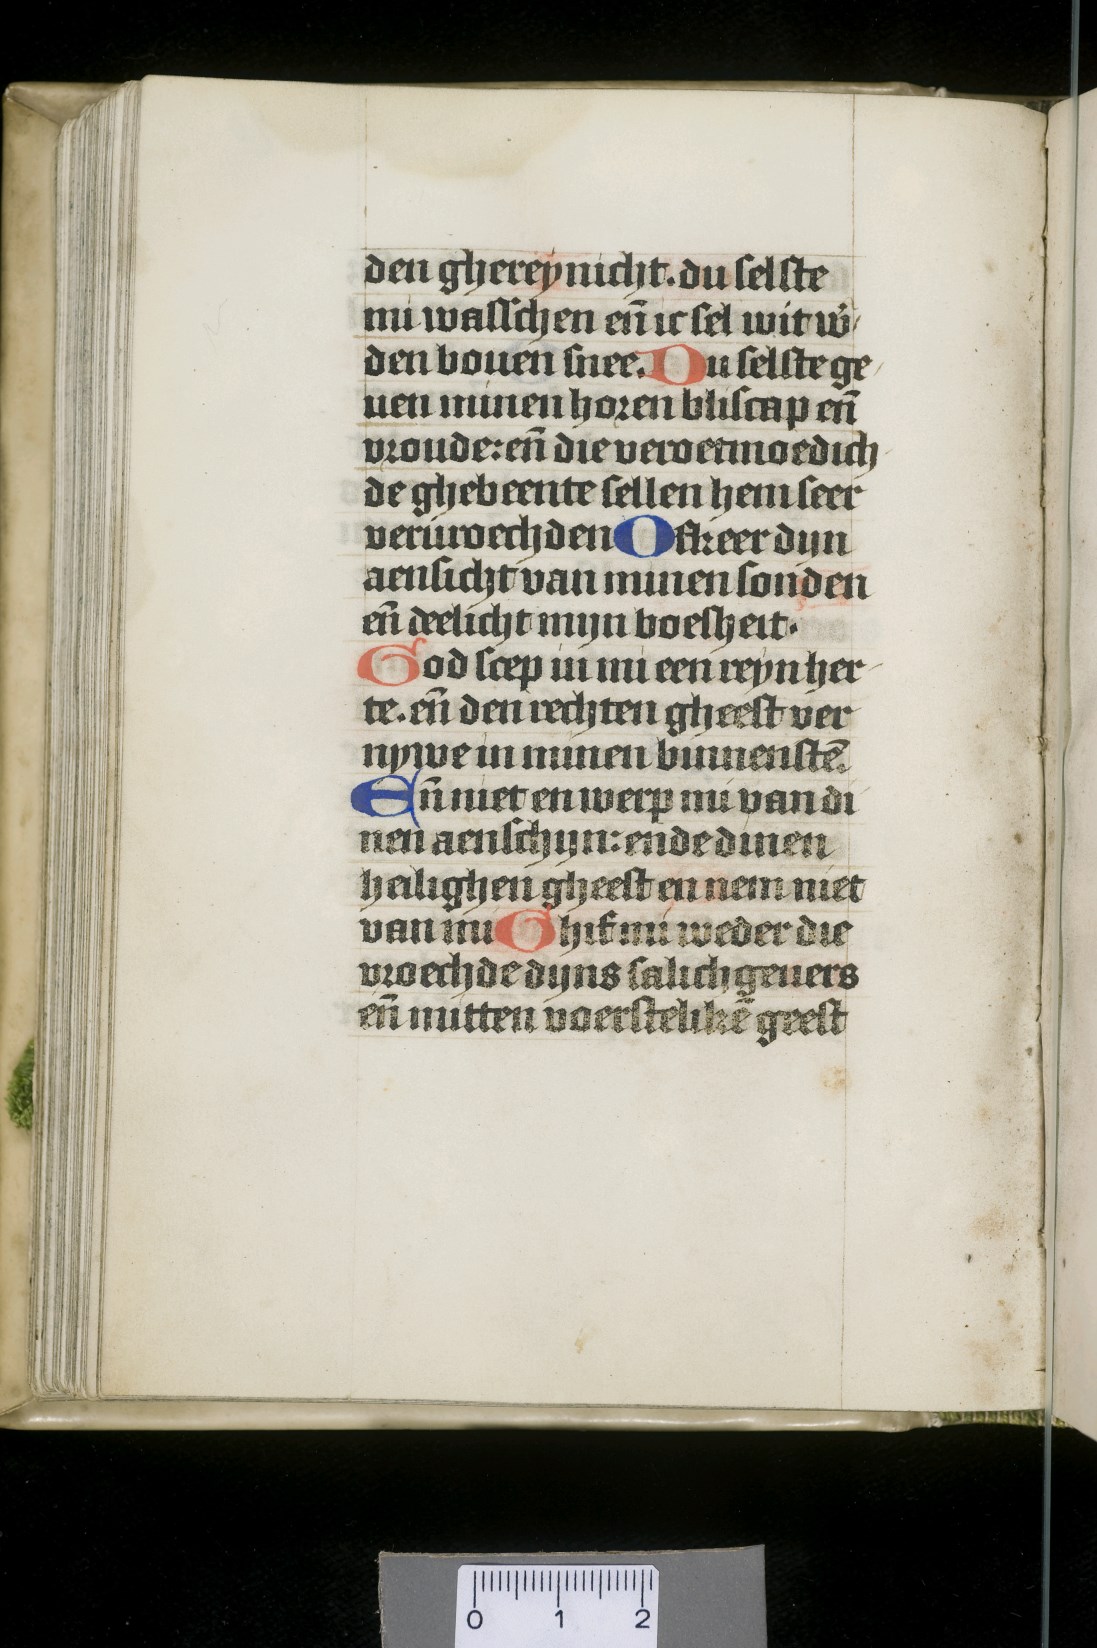 den ghereynicht. du selste
mi wasschen en̄ ic sel wit w̾
den bouen snee. Du selste ge
uen minen horen bliscap en̄
vroude: en̄ die veroetmoedich
de ghebeente sellen hem seer
veruroechden Ofkeer dijn
aensicht van minen sonden
en̄ deelicht mijn boesheit.
God scep in mi een reyn her
te. en̄ den rechten gheest ver
nywe in minen binnenstē.
En̄ niet en werp mi van di
nen aenschijn: ende dinen
heilighen gheest en nem niet
van mi Ghif mi weder die
vroechde dijns salichgeuers
en̄ mitten voerstelikē geest
0 1 2